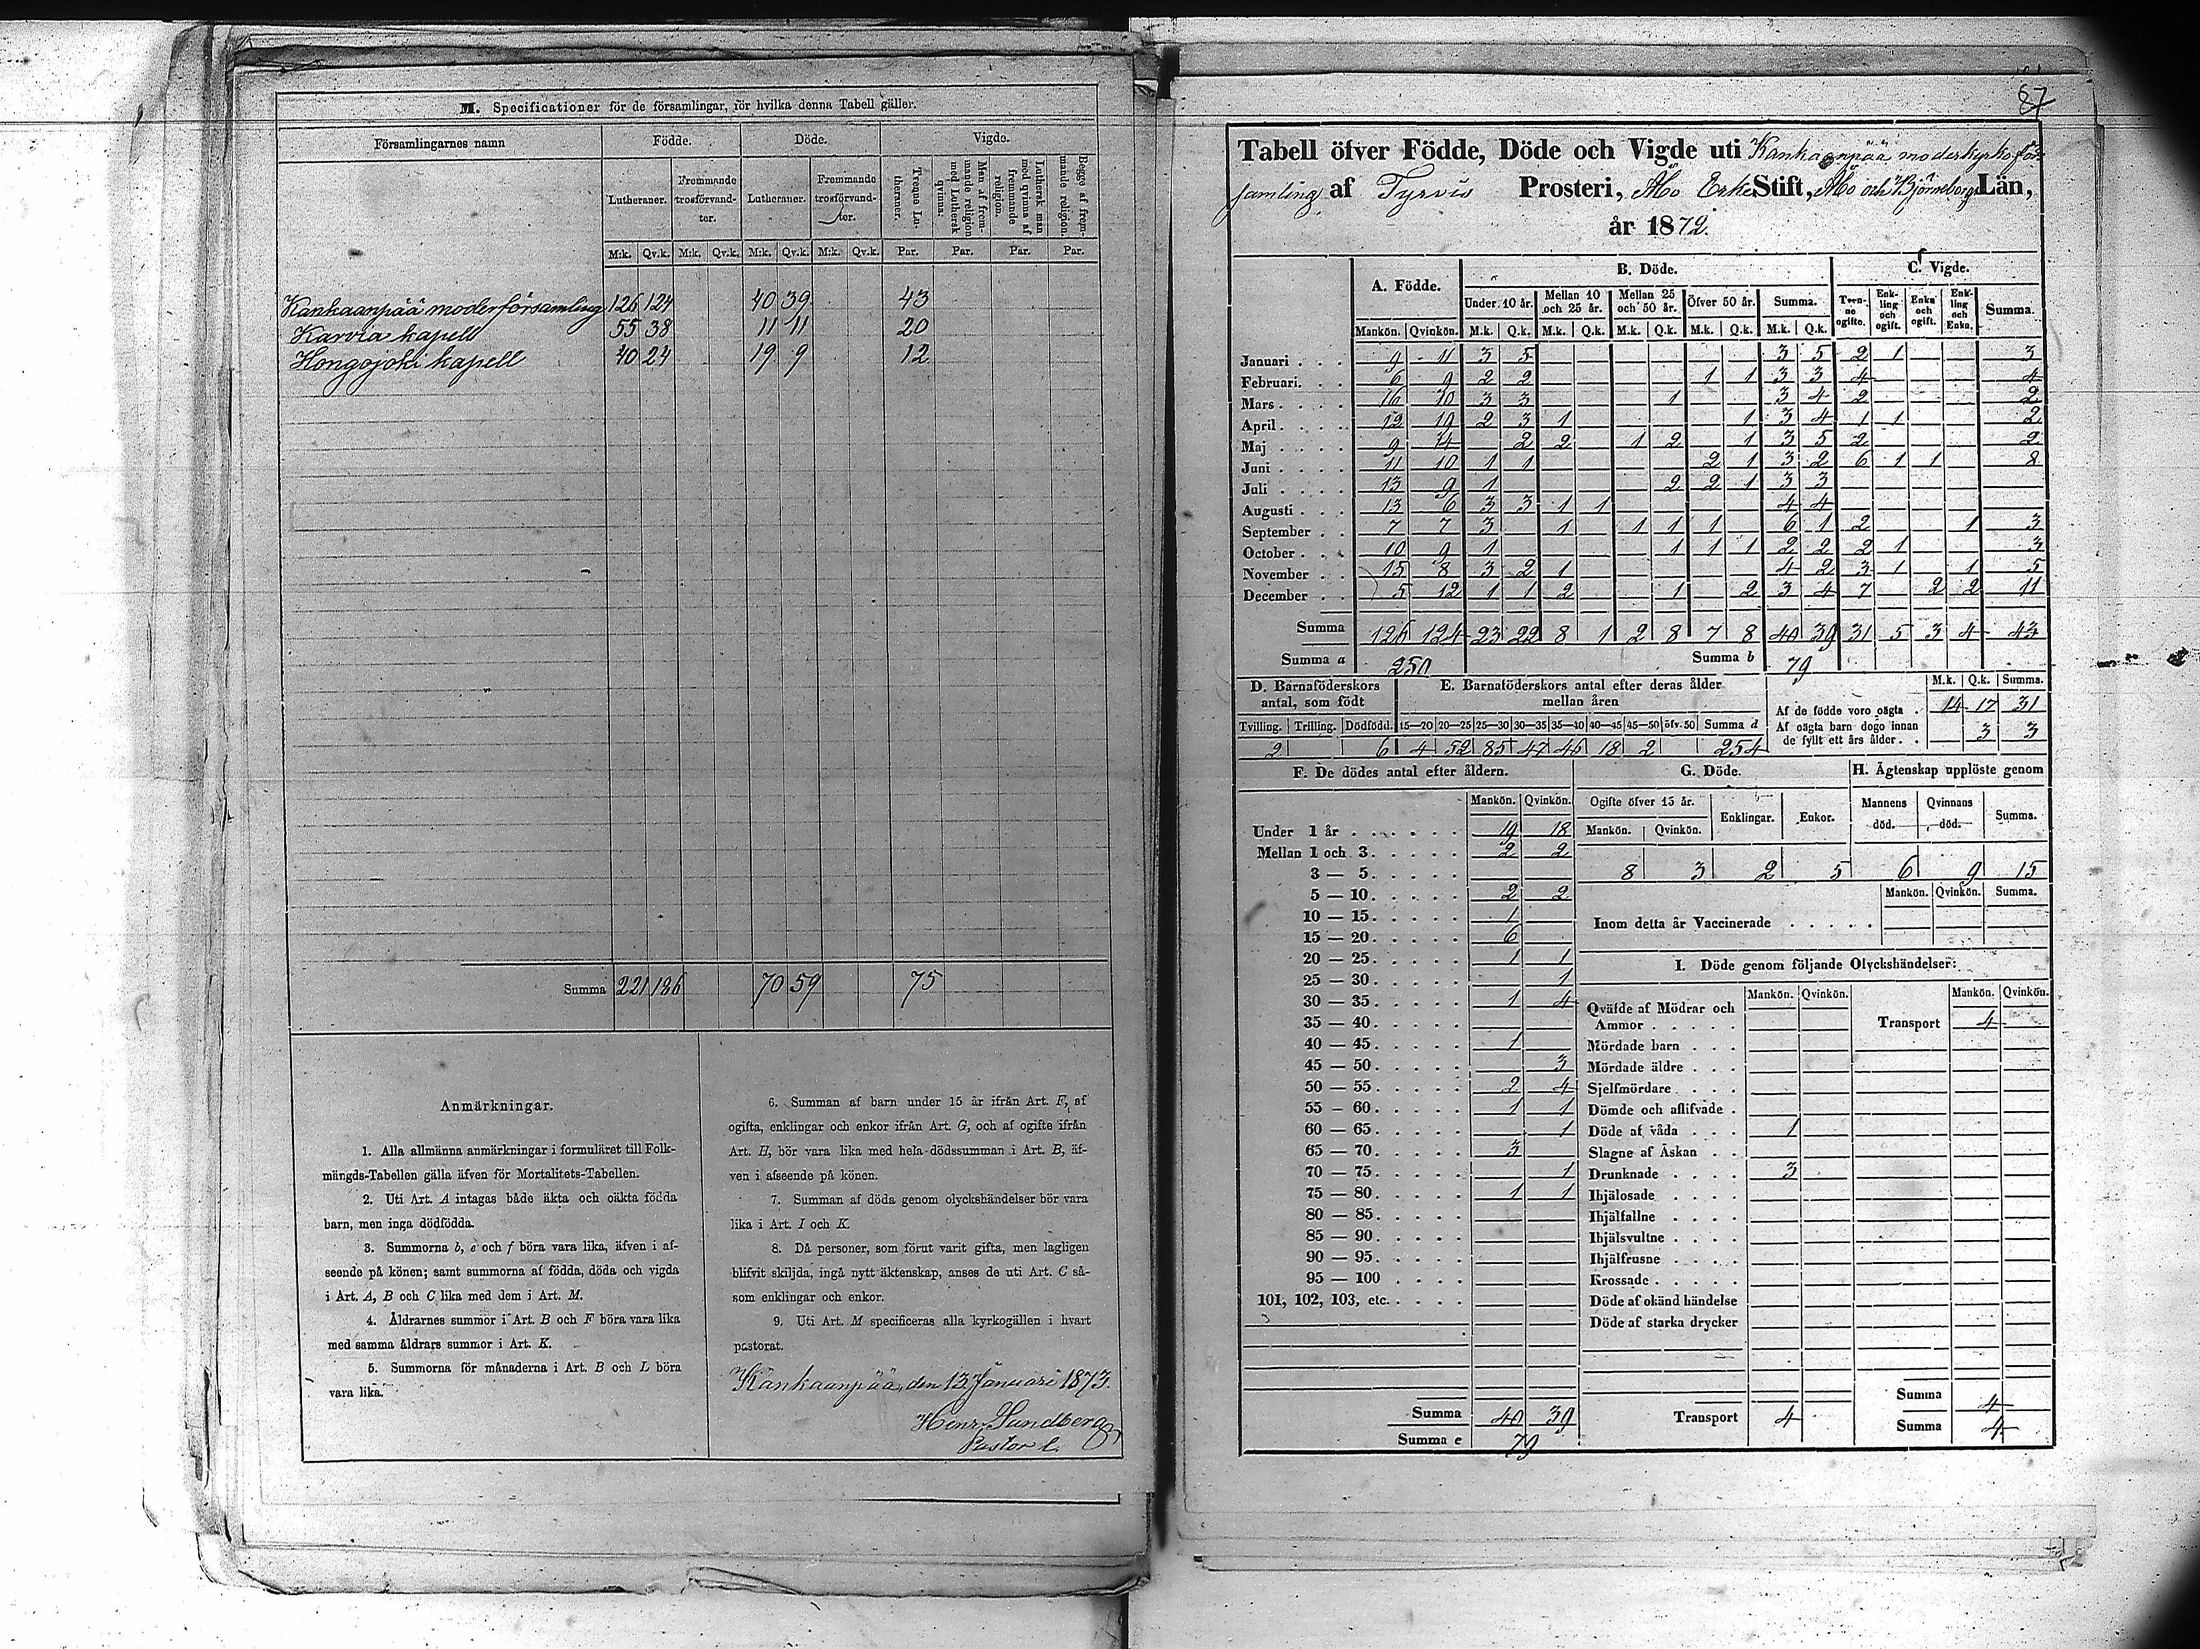 M. Specificationer för de församlingar, för hvilka denna Tabell gäller.
Församlingarnes namn Födde. Döde. Vigde.
Lutheraner. Fremmande trosförvandter. Lutheraner. Fremmande trosförvandter. Trenne Lutheraner. Män af frommande religion med Luthersk qvinna. Luthersk man med qvinna af fremmande religion. Begge af fremmande religion.
M:k. Qv.k. M:k. Qv.k. M:k. Qv.k. M:k. Qv.k. Par. Par. Par. Par.
Kankaanpää moderförsamling 126 124 40 39 43
Karvia kapell 55 38 11 11 20
Hongojoki kapell 40 24 19 9 12
Summa 221 186 70 59 75
Anmärkningar.
1. Alla allmänna anmärkningar i formuläret till Folk-
mängds-Tabellen gälla äfven för Mortalitets-Tabellen.
2. Uti Art. A intagas både äkta och oäkta födda
barn, men inga dödfödda.
3. Summorna b, e och f böra vara lika, äfven i af-
seende på könen; samt summorna af födda, döda och vigda
i Art. A, B och C lika med dem i Art. M.
4. Åldrarnes summor i Art. B och F böra vara lika
med samma åldrars summor i Art. K.
5. Summorna för månaderna i Art. B och L böra
vara lika.
6. Summan af barn under 15 år ifrån Art. F, af
ogifta, enklingar och enkor ifrån Art. G, och af ogifte ifrån
Art. H, bör vara lika med hela dödssumman i Art. B, äf-
ven i afseende på könen.
7. Summan af döda genom olyckshändelser bör vara
lika i Art. I och K.
8. Då personer, som förut varit gifta, men lagligen
blifvit skiljda, ingå nytt äktenskap, anses de uti Art. C så-
som enklingar och enkor.
9. Uti Art. M specificeras alla kyrkogällen i hvart
pastorat.
Kankaanpää, den 13 Januari 1873.
Henr. Sundberg
Pastor l.
87
Tabell öfver Födde, Döde och Vigde uti Kankaanpää moderkyrko för-
samling af Tyrvis Prosteri, Åbo Erke Stift, Åbo och Björneborgs Län,
år 1872.
A. Födde. B. Döde. C. Vigde.
Under 10 år. Mellan 10 och 25 år. Mellan 25 och 50 år. Öfver 50 år. Summa. Tvenne ogifte. Enkling och ogift. Enka och ogift. Enkling och Enka. Summa.
Mankön. Qvinkön. M.k. Q.k. M.k. Q.k. M.k. Q.k. M.k. Q.k. M.k. Q.k.
Januari 9 11 3 5 3 5 2 1 3
Februari 6 9 2 2 1 1 3 3 4 4
Mars 16 10 3 3 1 3 4 2 2
April 12 19 2 3 1 1 3 4 1 1 2
Maj 9 14 2 2 1 2 1 3 5 2 2
Juni 11 10 1 1 2 1 3 2 6 1 1 8
Juli 13 9 1 2 2 1 3 3
Augusti 13 6 3 3 1 1 4 4
September 7 7 3 1 1 1 1 6 1 2 1 3
October 10 9 1 1 1 1 2 2 2 1 3
November 15 8 3 2 1 4 2 3 1 1 5
December 5 12 1 1 2 1 2 3 4 7 2 2 11
Summa 126 124 23 22 8 1 2 8 7 8 40 39 31 5 3 4 43
Summa a 250 Summa b 79
D. Barnaföderskors antal, som födt
E. Barnaföderskors antal efter deras ålder mellan åren
Tvilling. Trilling. Dödfödd. 15—20 20—25 25—30 30—35 35—40 40—45 45—50 öfv. 50 Summa d
2 6 4 52 85 47 46 18 2 254
M.k. Q.k. Summa.
Af de födde voro oägta 14 17 31
Af oägta barn dogo innan
de fyllt ett års ålder 3 3
F. De dödes antal efter åldern.
Mankön. Qvinkön.
Under 1 år 19 18
Mellan 1 och 3 2 2
3 — 5
5 — 10 2 2
10 — 15 1
15 — 20 6
20 — 25 1 1
25 — 30 1
30 — 35 1 4
35 — 40
40 — 45 1
45 — 50 3
50 — 55 2 4
55 — 60 1 1
60 — 65 1
65 — 70 3
70 — 75 1
75 — 80 1 1
80 — 85
85 — 90
90 — 95
95 — 100
101, 102, 103, etc.
Summa 40 39
Summa e 79
G. Döde.
Ogifte öfver 15 år. Enklingar. Enkor.
Mankön. Qvinkön.
8 3 2 5
H. Ägtenskap upplöste genom
Mannens död. Qvinnans död. Summa.
6 9 15
Mankön. Qvinkön. Summa.
Inom detta år Vaccinerade
I. Döde genom följande Olyckshändelser:
Mankön. Qvinkön. Mankön. Qvinkön.
Qväfde af Mödrar och
Ammor
Transport 4
Mördade barn
Mördade äldre
Sjelfmördare
Dömde och aflifvade
Döde af våda 1
Slagne af Åskan
Drunknade 3
Ihjälosade
Ihjälfallne
Ihjälsvultne
Ihjälfrusne
Krossade
Döde af okänd händelse
Döde af starka drycker
Transport 4
Summa 4
Summa 4